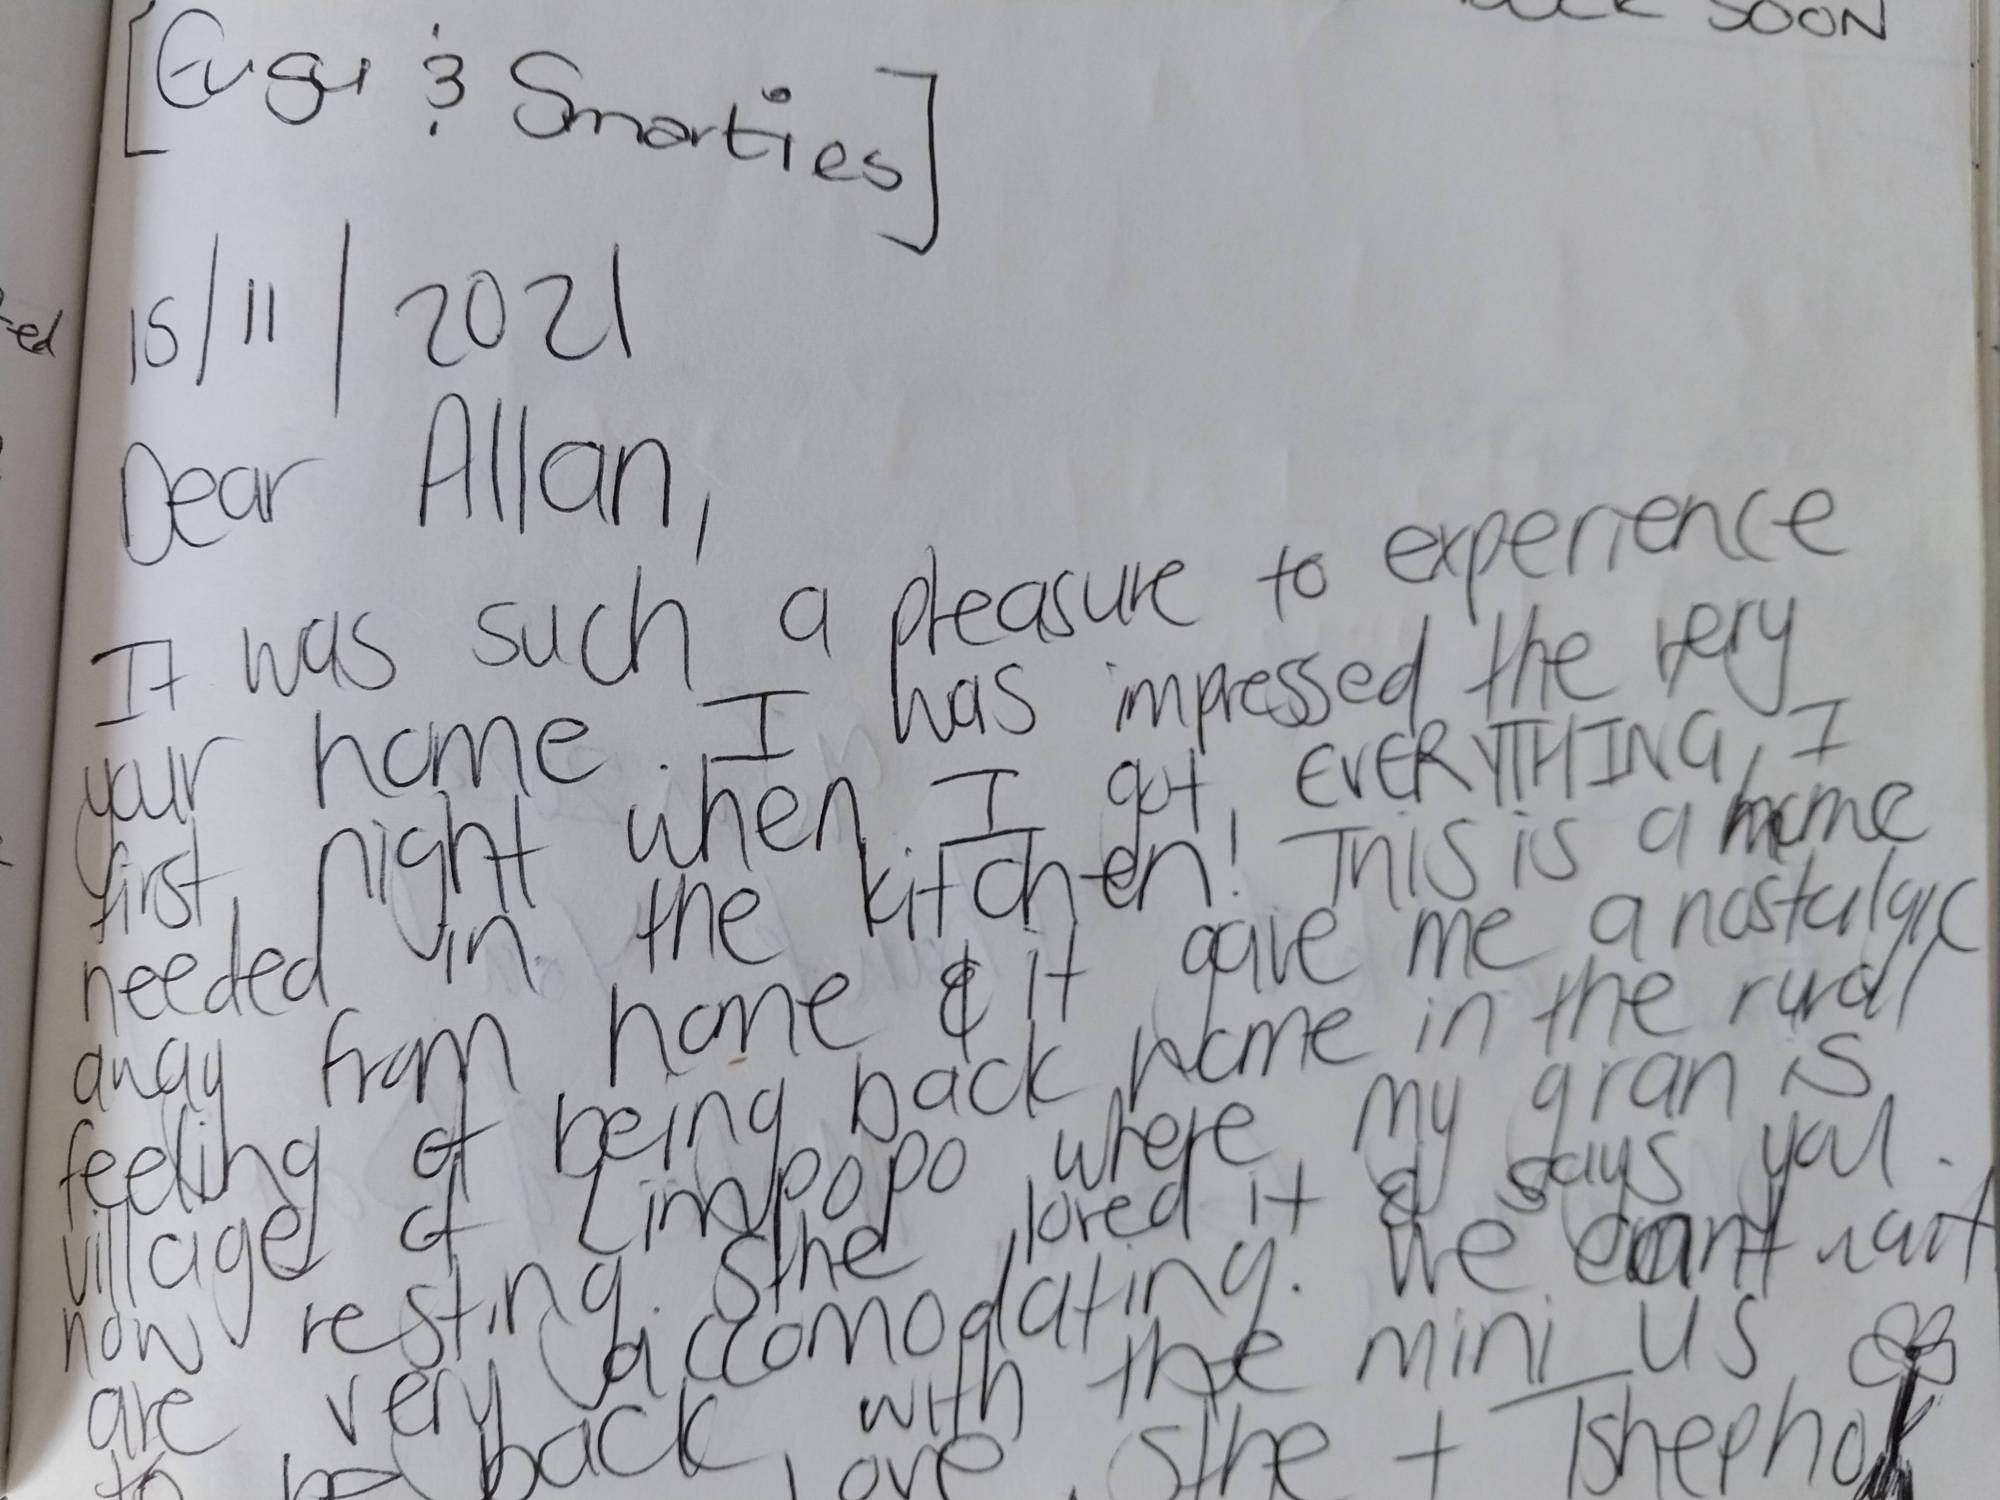 SOON
[Eugi & Smarties]
15/11/2021
Dear Allan,
It was such a pleasure to experience
your home. I was impressed the very
first night when I got EVERYTHING I
needed in the kitchen! This is a home
away from home & it gave me a nostalgic
feeling of being back home in the rural
village of Limpopo where my gran is
now resting. Sthe loved it & says you
are very accomodating. We cant wait
to be back with the mini us
Love, Sthe + Tshepho
-ed